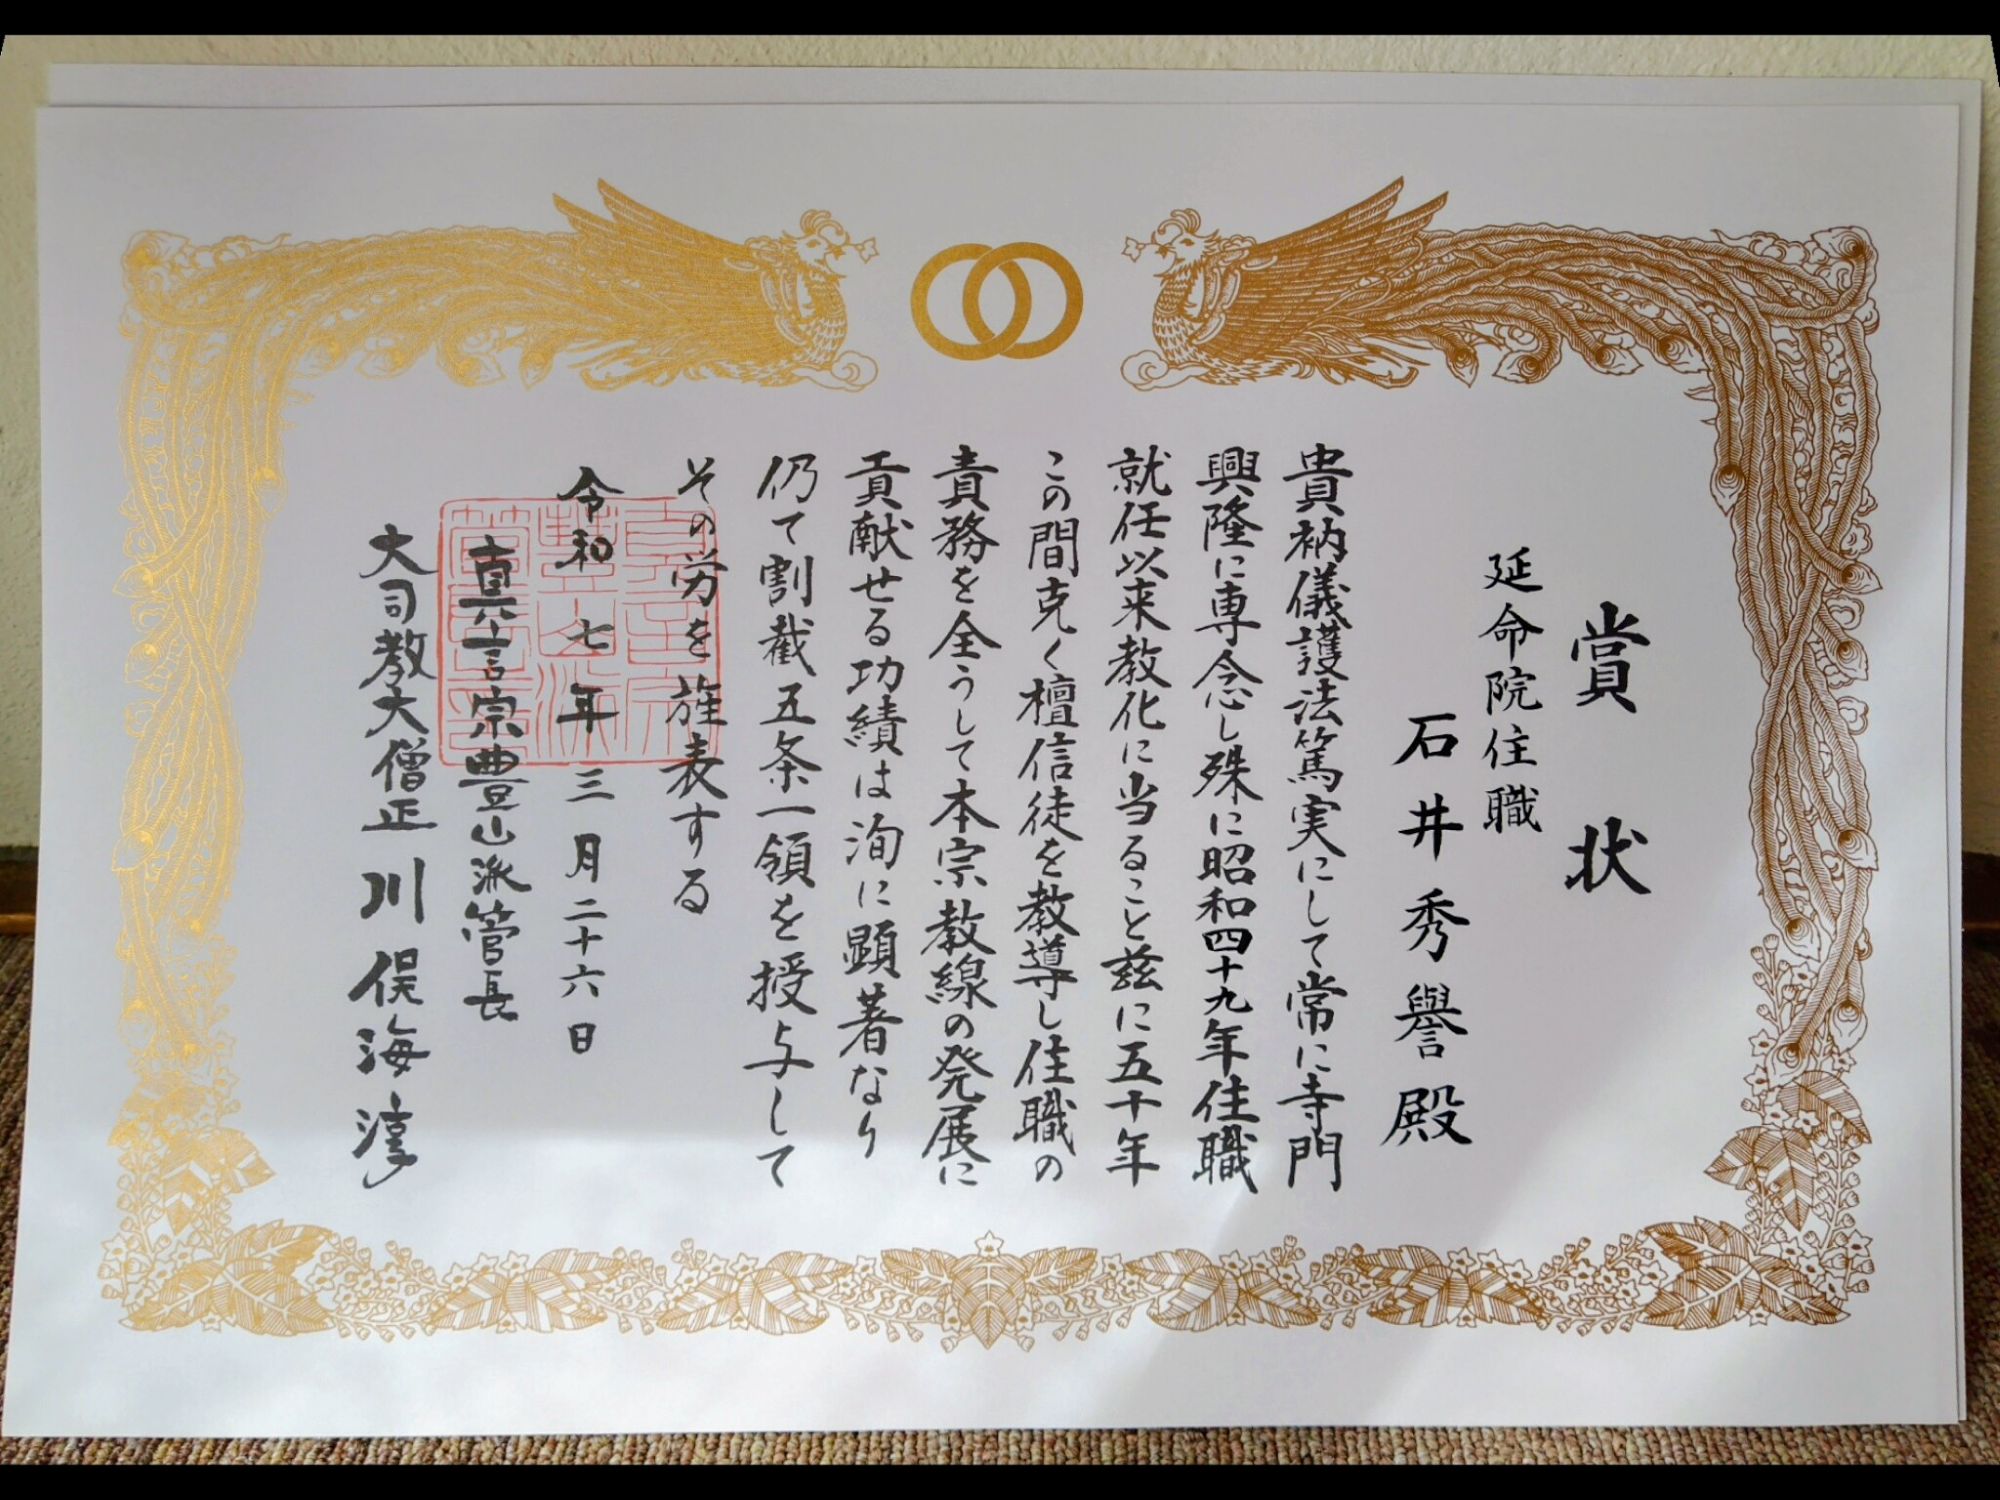 賞状
延命院住職
石井秀譽殿
貴衲儀護法篤実にして常に寺門
興隆に専念し殊に昭和四十九年住職
就任以来教化に当ること茲に五十年
この間克く檀信徒を教導し住職の
責務を全うして本宗教線の発展に
貢献せる功績は洵に顕著なり
仍て割截五条一領を授与して
その労を旌表する
令和七年三月二十六日
真言宗豊山派管長
大司教大僧正川俣海淳